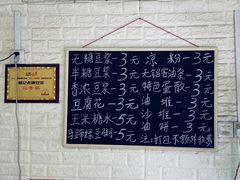 无糖豆浆-3元
半糖豆浆-3元
香浓豆浆-3元
豆腐花-3元
玉米糖水-5元
马蹄绿豆爽-5元
凉粉-3元
无铝客油条-3元
特色蛋散-3元
油堆-3元
油饼-3元
注:打包不额外收费